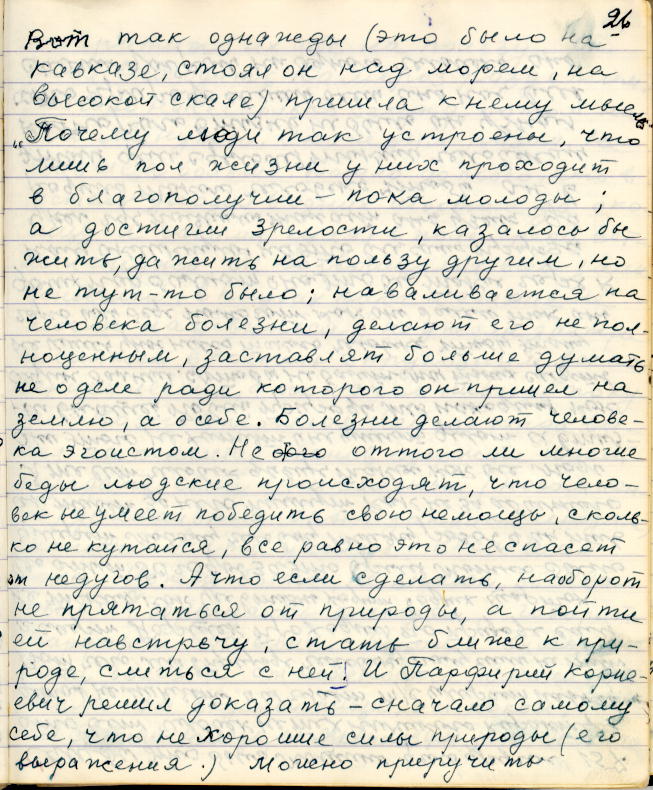 26
Вот так однажды (это было на
кавказе, стоял он над морем, на
высокой скале) пришла к нему мысль
„Почему люди так устроены, что
лишь пол жизни у них проходит
в благополучии – пока молоды;
а достигли зрелости, казалось бы
жить, да жить на пользу другим, но
не тут-то было; наваливается на
человека болезни, делают его непол-
ноценным, заставлят больше думать
не о деле ради которого он пришел на
землю, а о себе. Болезни делают челове-
ка эгоистом. Не оттого ли многие
беды людские происходят, что чело-
век не умеет победить свою немощь, сколь-
ко не кутайся, все равно это не спасет
от недугов. А что если сделать, наоборот
не прятаться от природы, а пойти
ей навстречу, стать ближе к при-
роде, слиться с ней! И Парфирий Корне-
евич решил доказать – сначало самому
себе, что не хорошие силы природы (его
выражения.) можно приручить